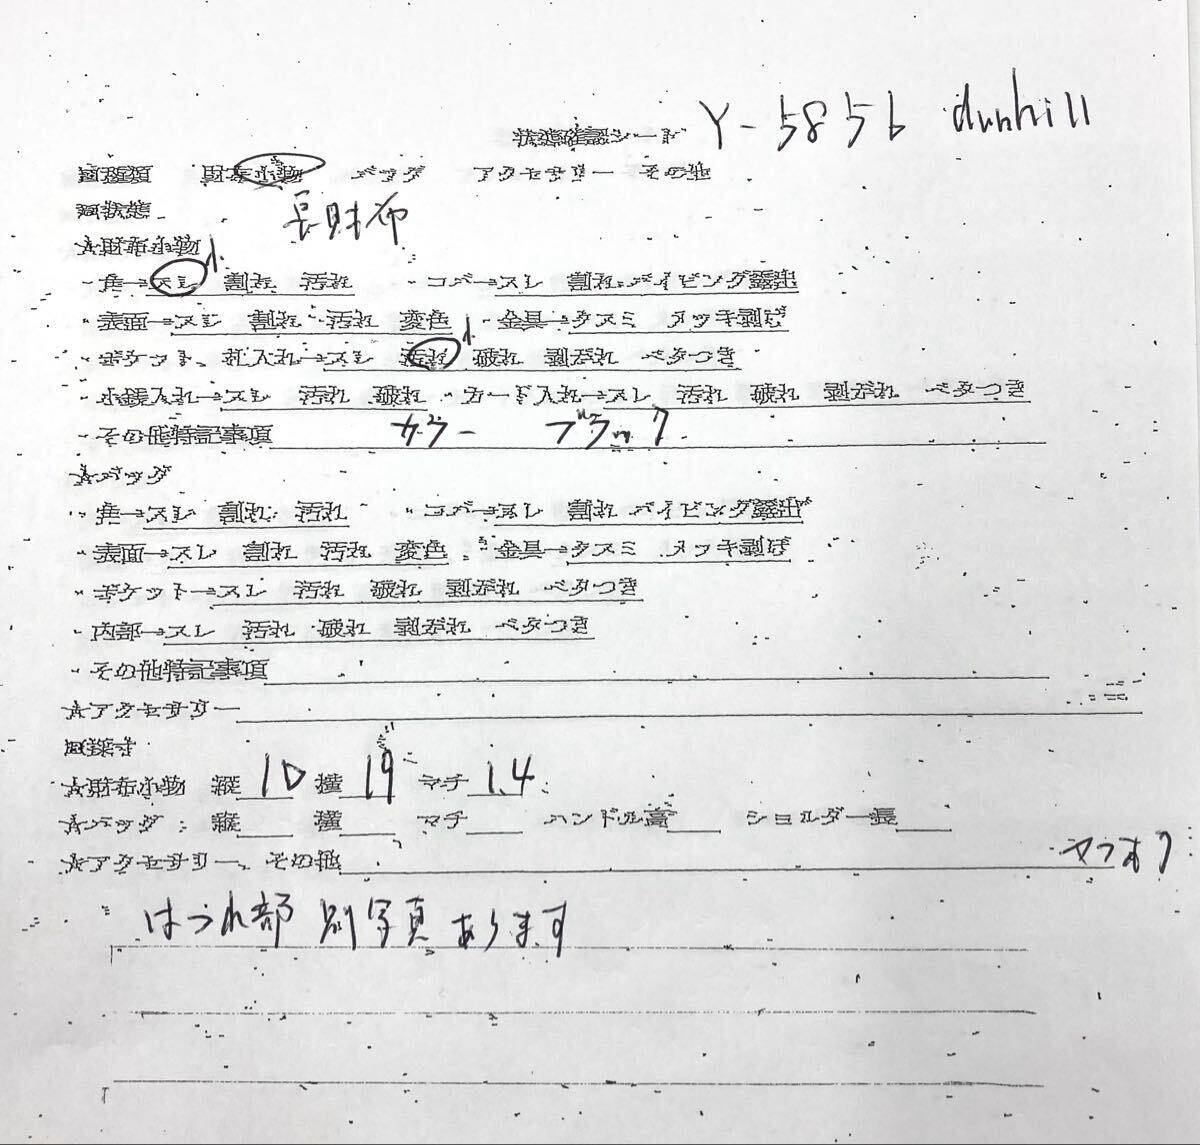 状態確認シート Y-5856 dunhill
財布小物 バッグ アクセサリー その他
状態 長財布
☆財布小物
・角→スレ 小 割れ 汚れ ・コバ→スレ 割れ パイピング露出
・表面→スレ 割れ 汚れ 変色 ・金具→クスミ メッキ剥げ
・ポケット、札入れ→スレ 汚れ 小 破れ 剥がれ ベタつき
・小銭入れ→スレ 汚れ 破れ ・カード入れ→スレ 汚れ 破れ 剥がれ ベタつき
・その他特記事項 カラー ブラック
☆バッグ
・角→スレ 割れ 汚れ ・コバ→スレ 割れ パイピング露出
・表面→スレ 割れ 汚れ 変色 ・金具→クスミ メッキ剥げ
・ポケット→スレ 汚れ 破れ 剥がれ ベタつき
・内部→スレ 汚れ 破れ 剥がれ ベタつき
・その他特記事項
☆アクセサリー
採寸
☆財布小物 縦 10 横 19 マチ 1.4
☆バッグ : 縦 横 マチ ハンドル高 ショルダー長
☆アクセサリー、その他 ヤフオク
はづれ部 別写真あります